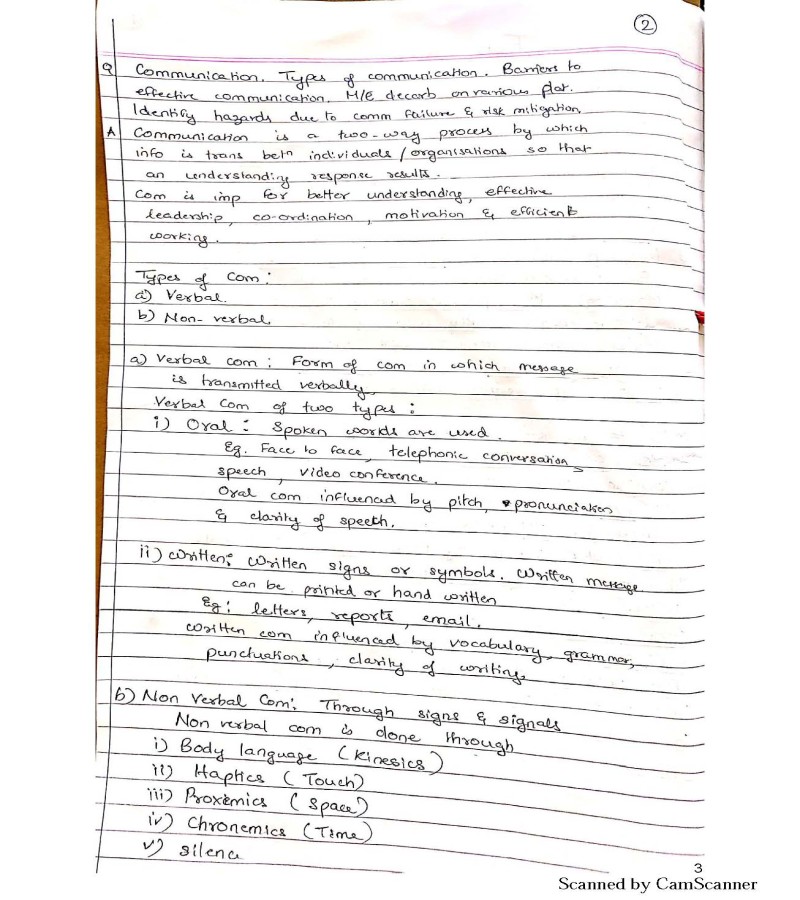 2
Q Communication. Types of communication. Barriers to
effective communication. M/E decarb on various plat.
Identify hazards due to comm failure & risk mitigation.
A Communication is a two-way process by which
info is trans betn individuals / organisations so that
an understanding response results.
Com is imp for better understanding, effective
leadership, co-ordination, motivation & efficient
working.
Types of Com:
a) Verbal.
b) Non-verbal
a) Verbal com: Form of com in which message
is transmitted verbally.
Verbal Com of two types:
i) Oral: Spoken words are used.
Eg. Face to face, telephonic conversation,
speech, video conference.
Oral com influenced by pitch, pronunciation
& clarity of speech.
ii) Written: Written signs or symbols. Written message
can be printed or hand written
Eg: letters, reports, email.
Written com influenced by vocabulary, grammar,
punctuations, clarity of writing.
b) Non Verbal Com: Through signs & signals
Non verbal com is done through
i) Body language (Kinesics)
ii) Haptics (Touch)
iii) Proxemics (Space)
iv) Chronemics (Time)
v) Silence
3
Scanned by CamScanner